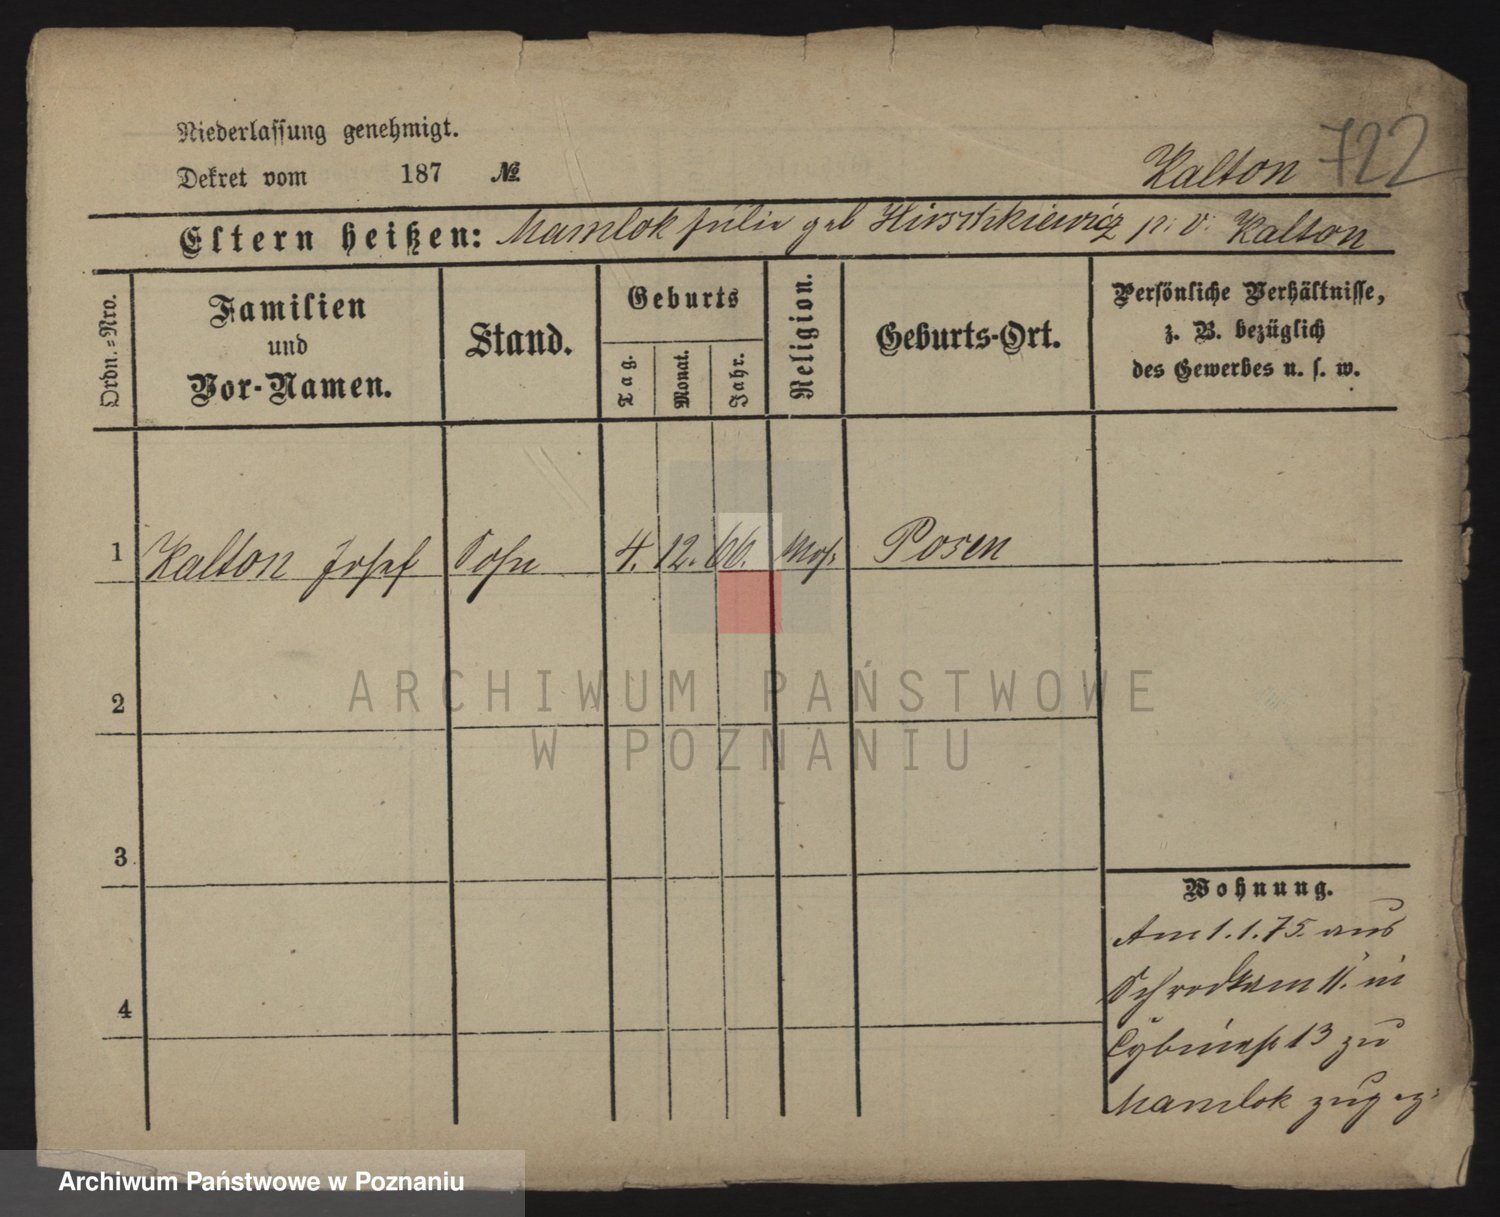 Niederlassung genehmigt.
Dekret vom 187 №
Kalton 722
Eltern heißen: Mamlok Julie geb Hirschkiewicz p. v. Kalton
Ordn.=Nro.
Familien
und
Vor-Namen.
Stand.
Geburts
Tag.
Monat.
Jahr.
Religion.
Geburts-Ort.
Persönliche Verhältnisse,
z. B. bezüglich
des Gewerbes u. s. w.
1 Kalton Josef Sohn 4. 12. 66. Mos. Posen
2
ARCHIWUM PAŃSTWOWE
W POZNANIU
3
Wohnung.
Am 1.1.75. aus
11. in
13 zu
4
Mamlok zugez.
Archiwum Państwowe w Poznaniu